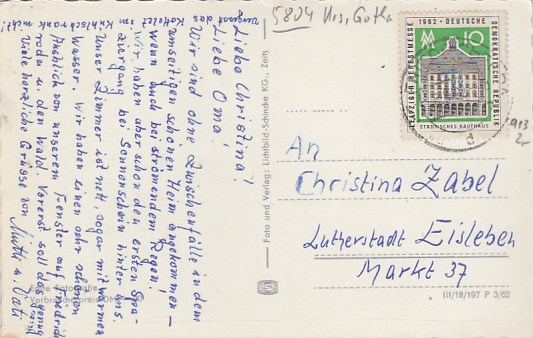 Vergesst das Kotelett im Kühlschrank nicht!
Liebe Christina!
Liebe Oma,
Wir sind ohne Zwischenfälle in dem
umseitigen schönen Heim angekommen –
wenn auch bei strömendem Regen.
Wir haben aber schon den ersten Spa-
ziergang bei Sonnenschein hinter uns.
Unser Zimmer ist nett, sogar mit warmen
Wasser. Wir haben einen sehr schönen
Ausblick von unserem Fenster auf Friedrich
roda u. den Wald. Vorerst soll das genug sein
Viele herzliche Grüsse von Mutti u. Vati
Echte Fotografie
Verbraucherpreis DM
Foto und Verlag: Lichtbild-Schincke KG., Zeitz
5804
Gotha
LEIPZIGER HERBSTMESSE
1962 · DEUTSCHE
DEMOKRATISCHE REPUBLIK
MM
10
STROHSACKS KAUFHAUS
An
Christina Zabel
Lutherstadt Eisleben
Markt 37
III/18/197 P 3/62